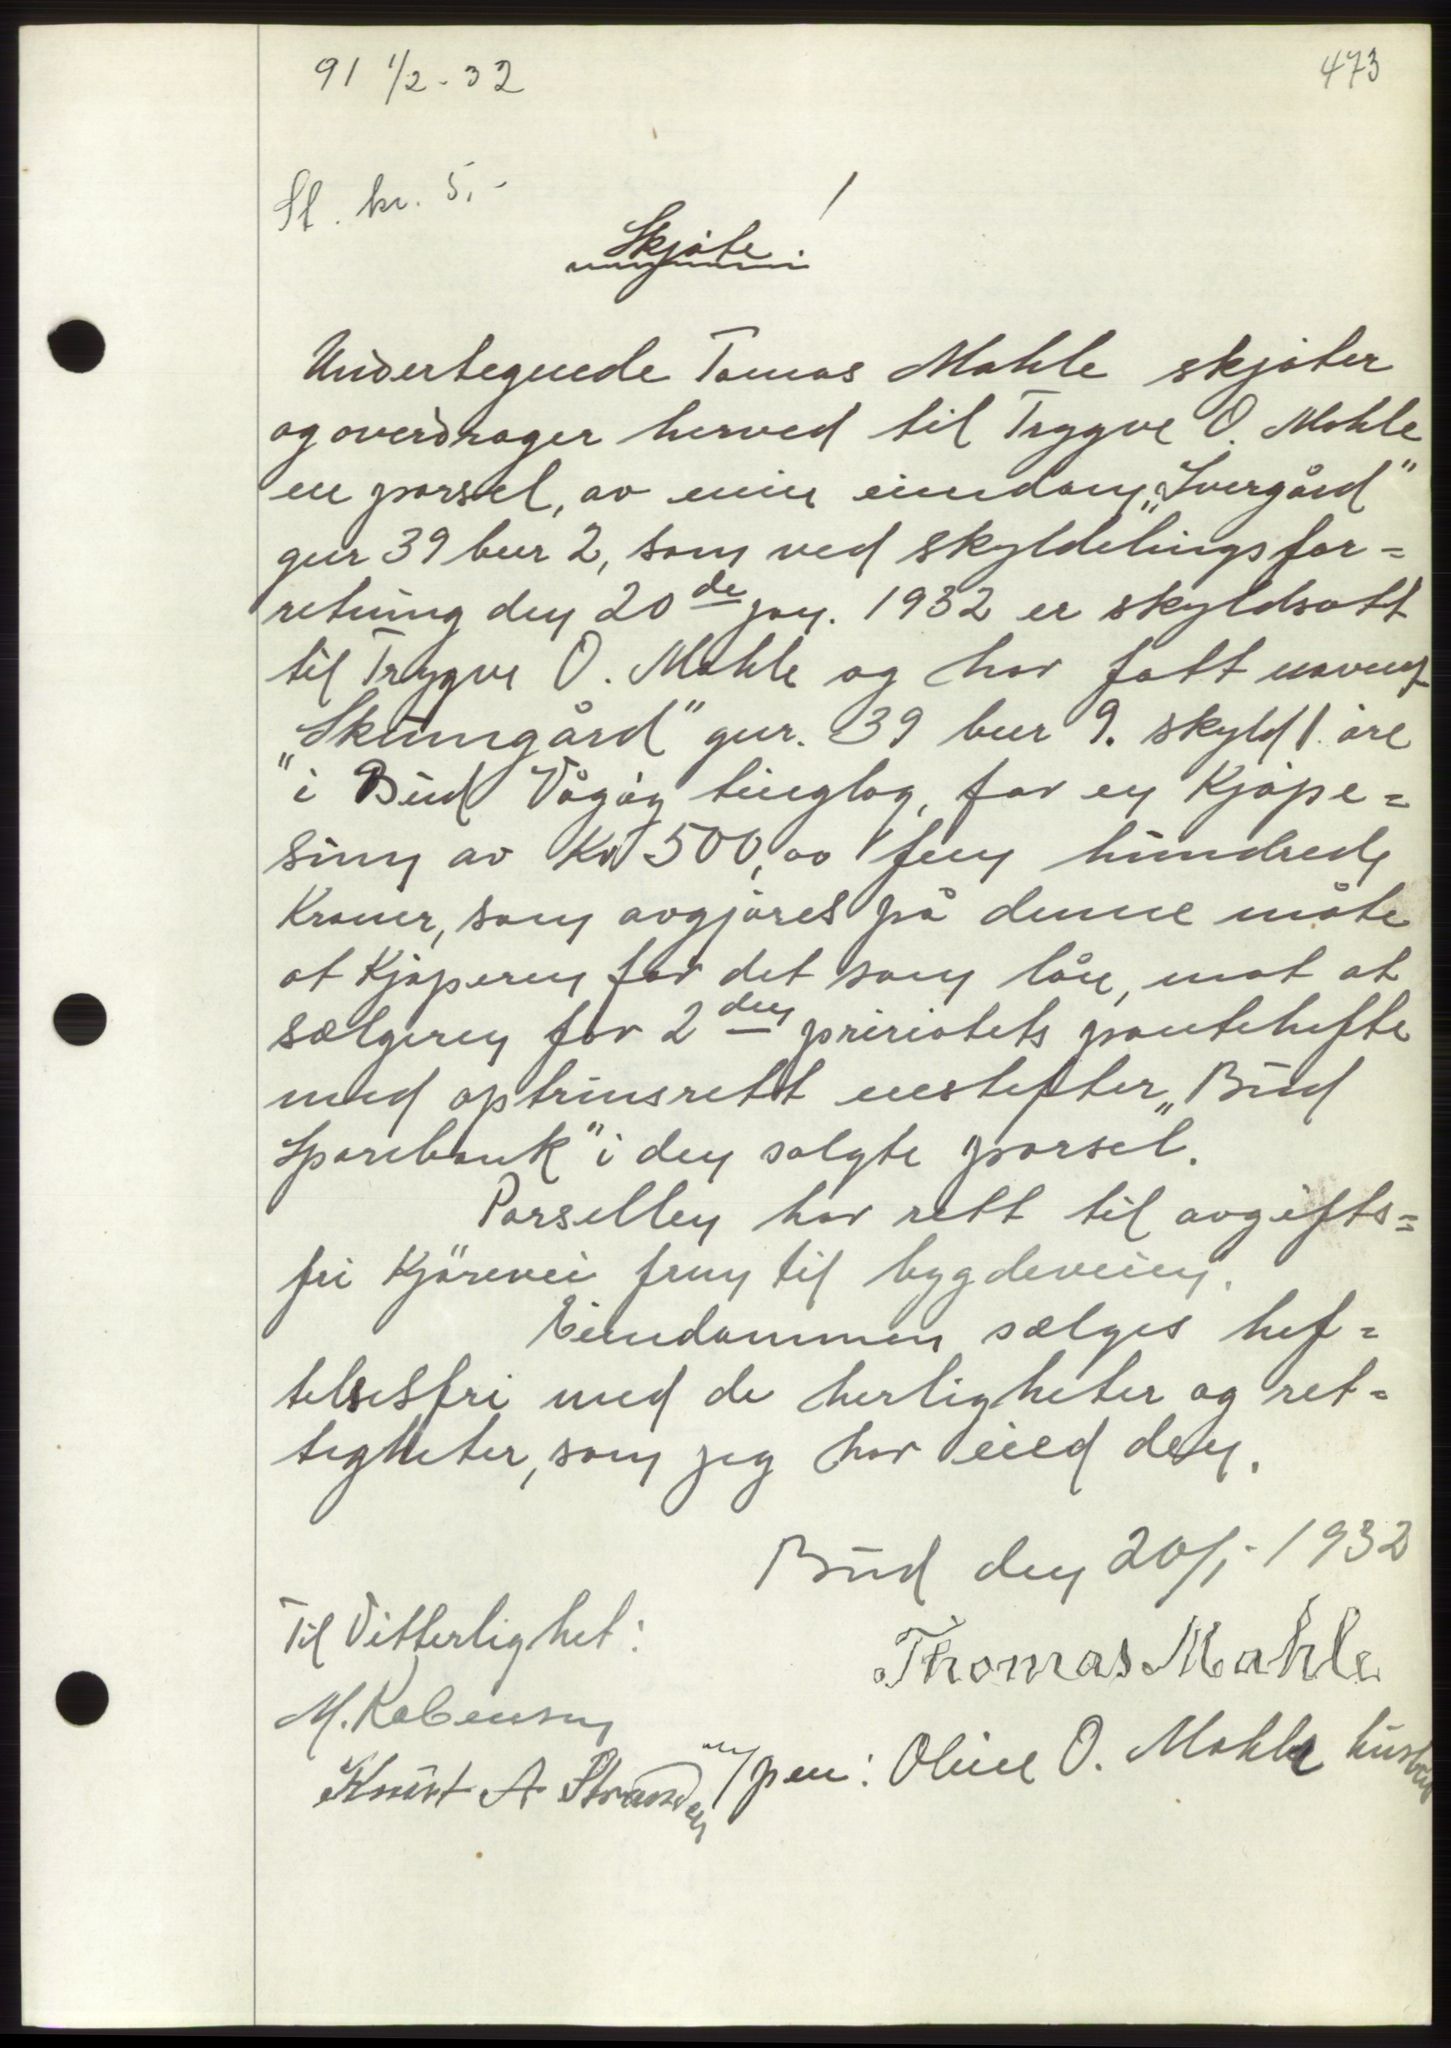 91 1/2 - 32
473
St. kr. 5,-
Skjøte!
Undertegnede Tomas Mahle skjøter
og overdrager herved til Trygve O. Mahle
en parsel, av min eiendom „Ivergård"
gnr 39 bnr 2, som ved skyldelingsfor=
retning den 20de jan. 1932 er skyldsatt
til Trygve O. Mahle og har fått navnet
„Skumgård" gnr. 39 bnr 9. skyld 1 øre
i Bud Vågøy tinglag, for en Kjøpe=
sum av Kr 500,00 fem hundrede
Kroner, som avgjøres på denne måte
at Kjøperen får det som lån, mot at
sælgeren får 2den pririotets pantehefte
med optrinsrett nestefter „Bud
Sparebank" i den solgte parsel.
Parsellen har rett til avgifts=
fri Kjørevei frem til bygdeveien.
Eiendommen sælges hef=
telsesfri med de herligheter og ret=
tigheter, som jeg har eied den.
Bud den 20/1- 1932
Til Vitterlighet:
Thomas Mahle
M. Robensen
m/pen: Oline O. Mahle hustru
Knut A Stranden